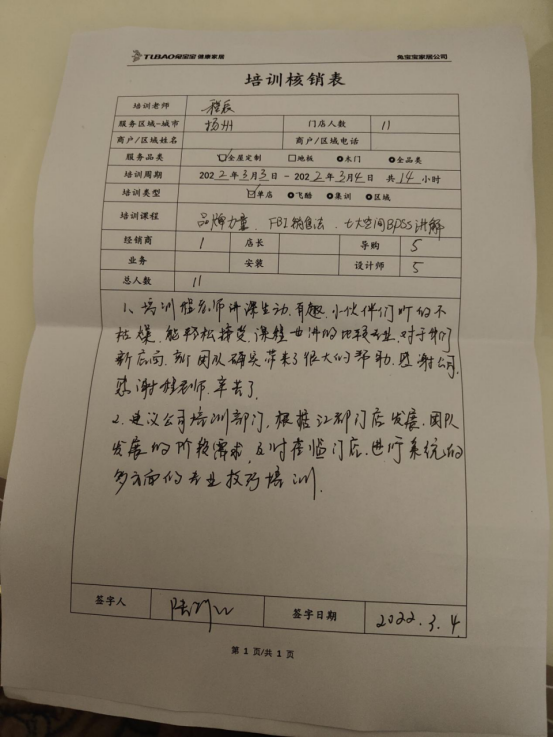 TUBAO兔宝宝 健康家居 兔宝宝家居公司
培训核销表
培训老师 程辰
服务区域-城市 扬州 门店人数 11
商户/区域姓名 商户/区域电话
服务品类 全屋定制 地板 木门 全品类
培训周期 2022年3月3日-2022年3月4日 共14小时
培训类型 单店 飞酷 集训 区域
培训课程 品牌力量、FBI销售法、七大空间BPSS讲解
经销商 1 店长 导购 5
业务 安装 设计师 5
总人数 11
1、培训程老师讲课生动、有趣、小伙伴们听的不
枯燥、能轻松接受、课程安排的比较专业、对于我们
新店面、新团队确实带来了很大的帮助、感谢公司、
感谢程老师、辛苦了
2、建议公司培训部门、根据江都门店发展、团队
发展的阶段需求、及时莅临门店、进行系统的
多方面的专业技巧培训、
签字人 签字日期 2022.3.4
第 1 页/共 1 页